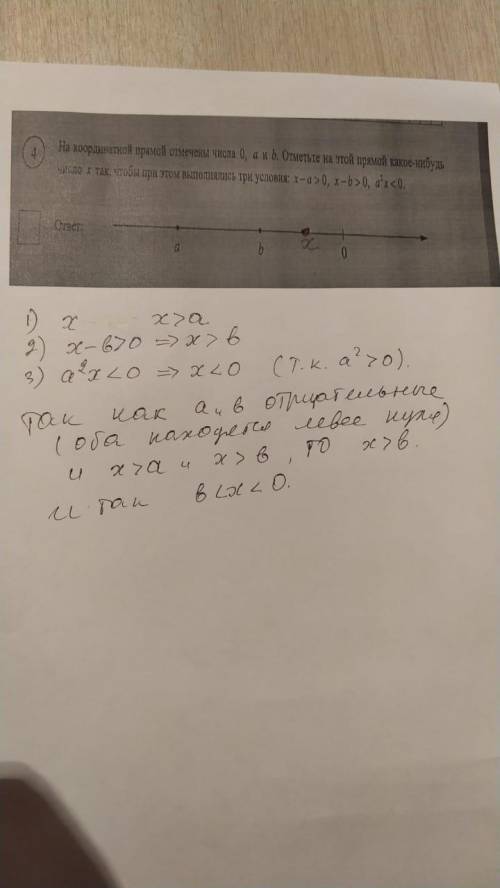 4
На координатной прямой отмечены числа 0, a и b. Отметьте на этой прямой какое-нибудь
число x так, чтобы при этом выполнялись три условия: x−a>0, x−b>0, a²x<0.
Ответ:
a b x 0
1) x x>a
2) x−в>0 ⇒ x>в
3) a²x<0 ⇒ x<0 (т.к. a²>0).
Так как a и в отрицательные
(оба находятся левее нуля)
и x>a и x>в, то x>в.
Итак в<x<0.